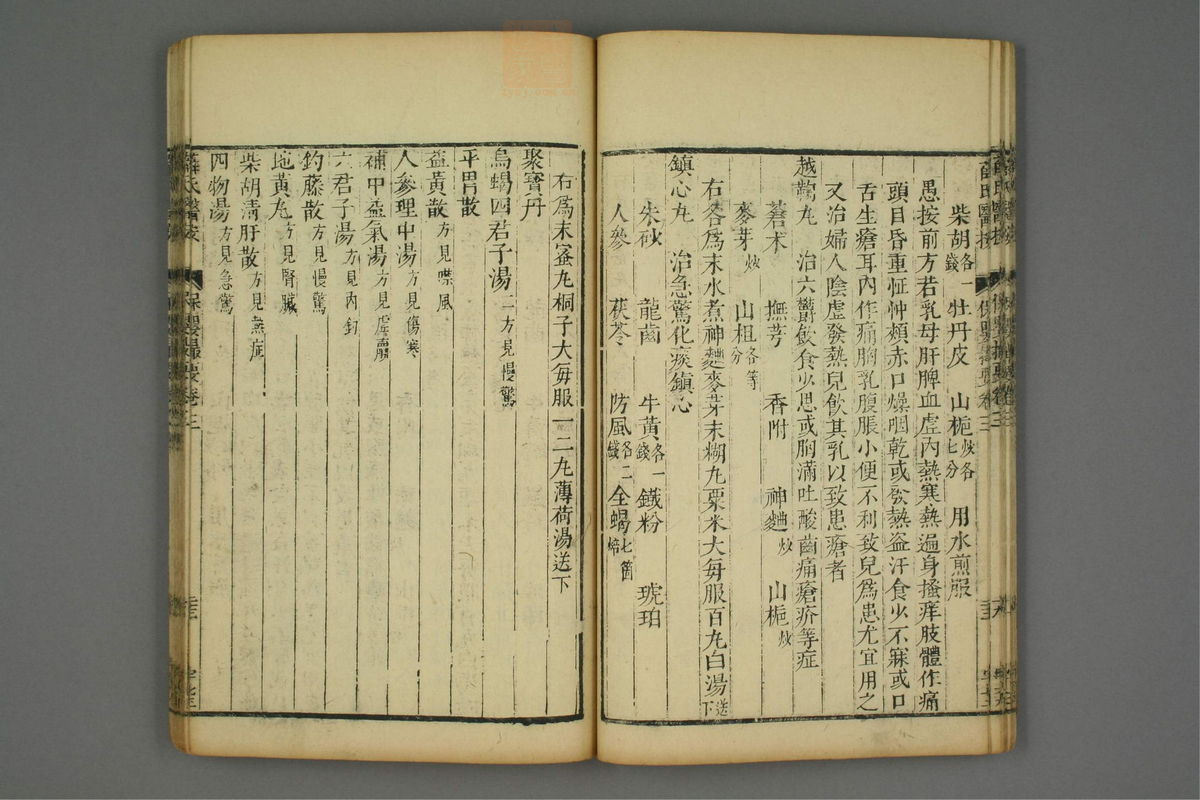 柴胡各一錢 牡丹皮 山梔炒各七分 用水煎服
愚按前方若乳母肝脾血虛內熱寒熱遍身搔痒肢體作痛
頭目昏重怔忡頰赤口燥咽乾或發熱盜汗食少不寐或口
舌生瘡耳內作痛胸乳腹脹小便不利致兒爲患尤宜用之
又治婦人陰虛發熱兒飲其乳以致患瘡者
越鞠丸 治六鬱飲食少思或胸滿吐酸齒痛瘡疥等症
蒼朮 撫芎 香附 神麯炒 山梔炒
麥芽炒 山柤各等分
右各爲末水煮神麯麥芽末糊丸粟米大每服百丸白湯送下
鎮心丸 治急驚化痰鎮心
朱砂 龍齒 牛黃各一錢 鐵粉 琥珀
人參 茯苓 防風各二錢 全蝎七箇焙
右爲末蜜丸桐子大每服一二丸薄荷湯送下
聚寶丹
烏蝎四君子湯二方見慢驚
平胃散
益黃散方見噤風
人參理中湯方見傷寒
補中益氣湯方見虛羸
六君子湯方見內釣
釣藤散方見慢驚
地黃丸方見腎臟
柴胡清肝散方見熱症
四物湯方見急驚
薛氏醫按 保嬰撮要卷三